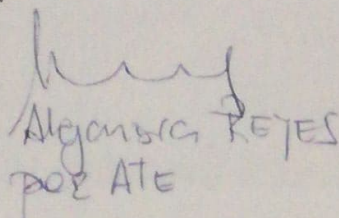 Alejandra REYES
POR ATE